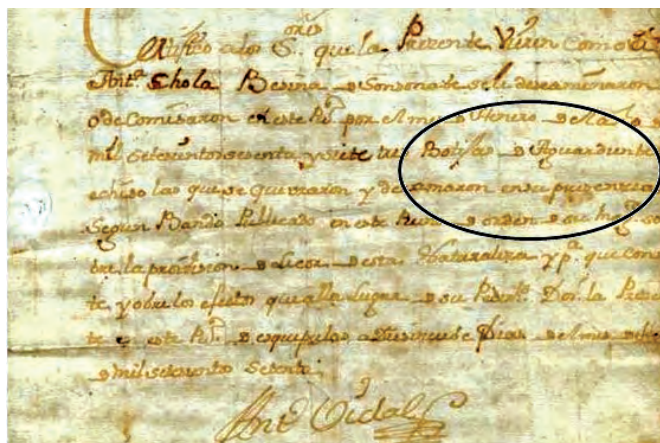 Certifico a los S.ores que la Prezente Vieren Como a
Ant.a Chola Besina de Sonsonate se le
o de Comisaron en este R.l por el mes de Henero de el año de
mil setecientos sesenta y siete tres Botijas de Aguardiente
echiso las que se quevraron y derramaron en su prezencia
Segun Bando Publicado en este de orden de su
bre la proivision de Licor de esta Naturaliza y p.a que cons
te y obre los efetos que alla Lugar de su Doi la Preze
te en este R.l de esquipulas a Dias de el mes de
de mil setecientos setenta
Ant.o Vidal